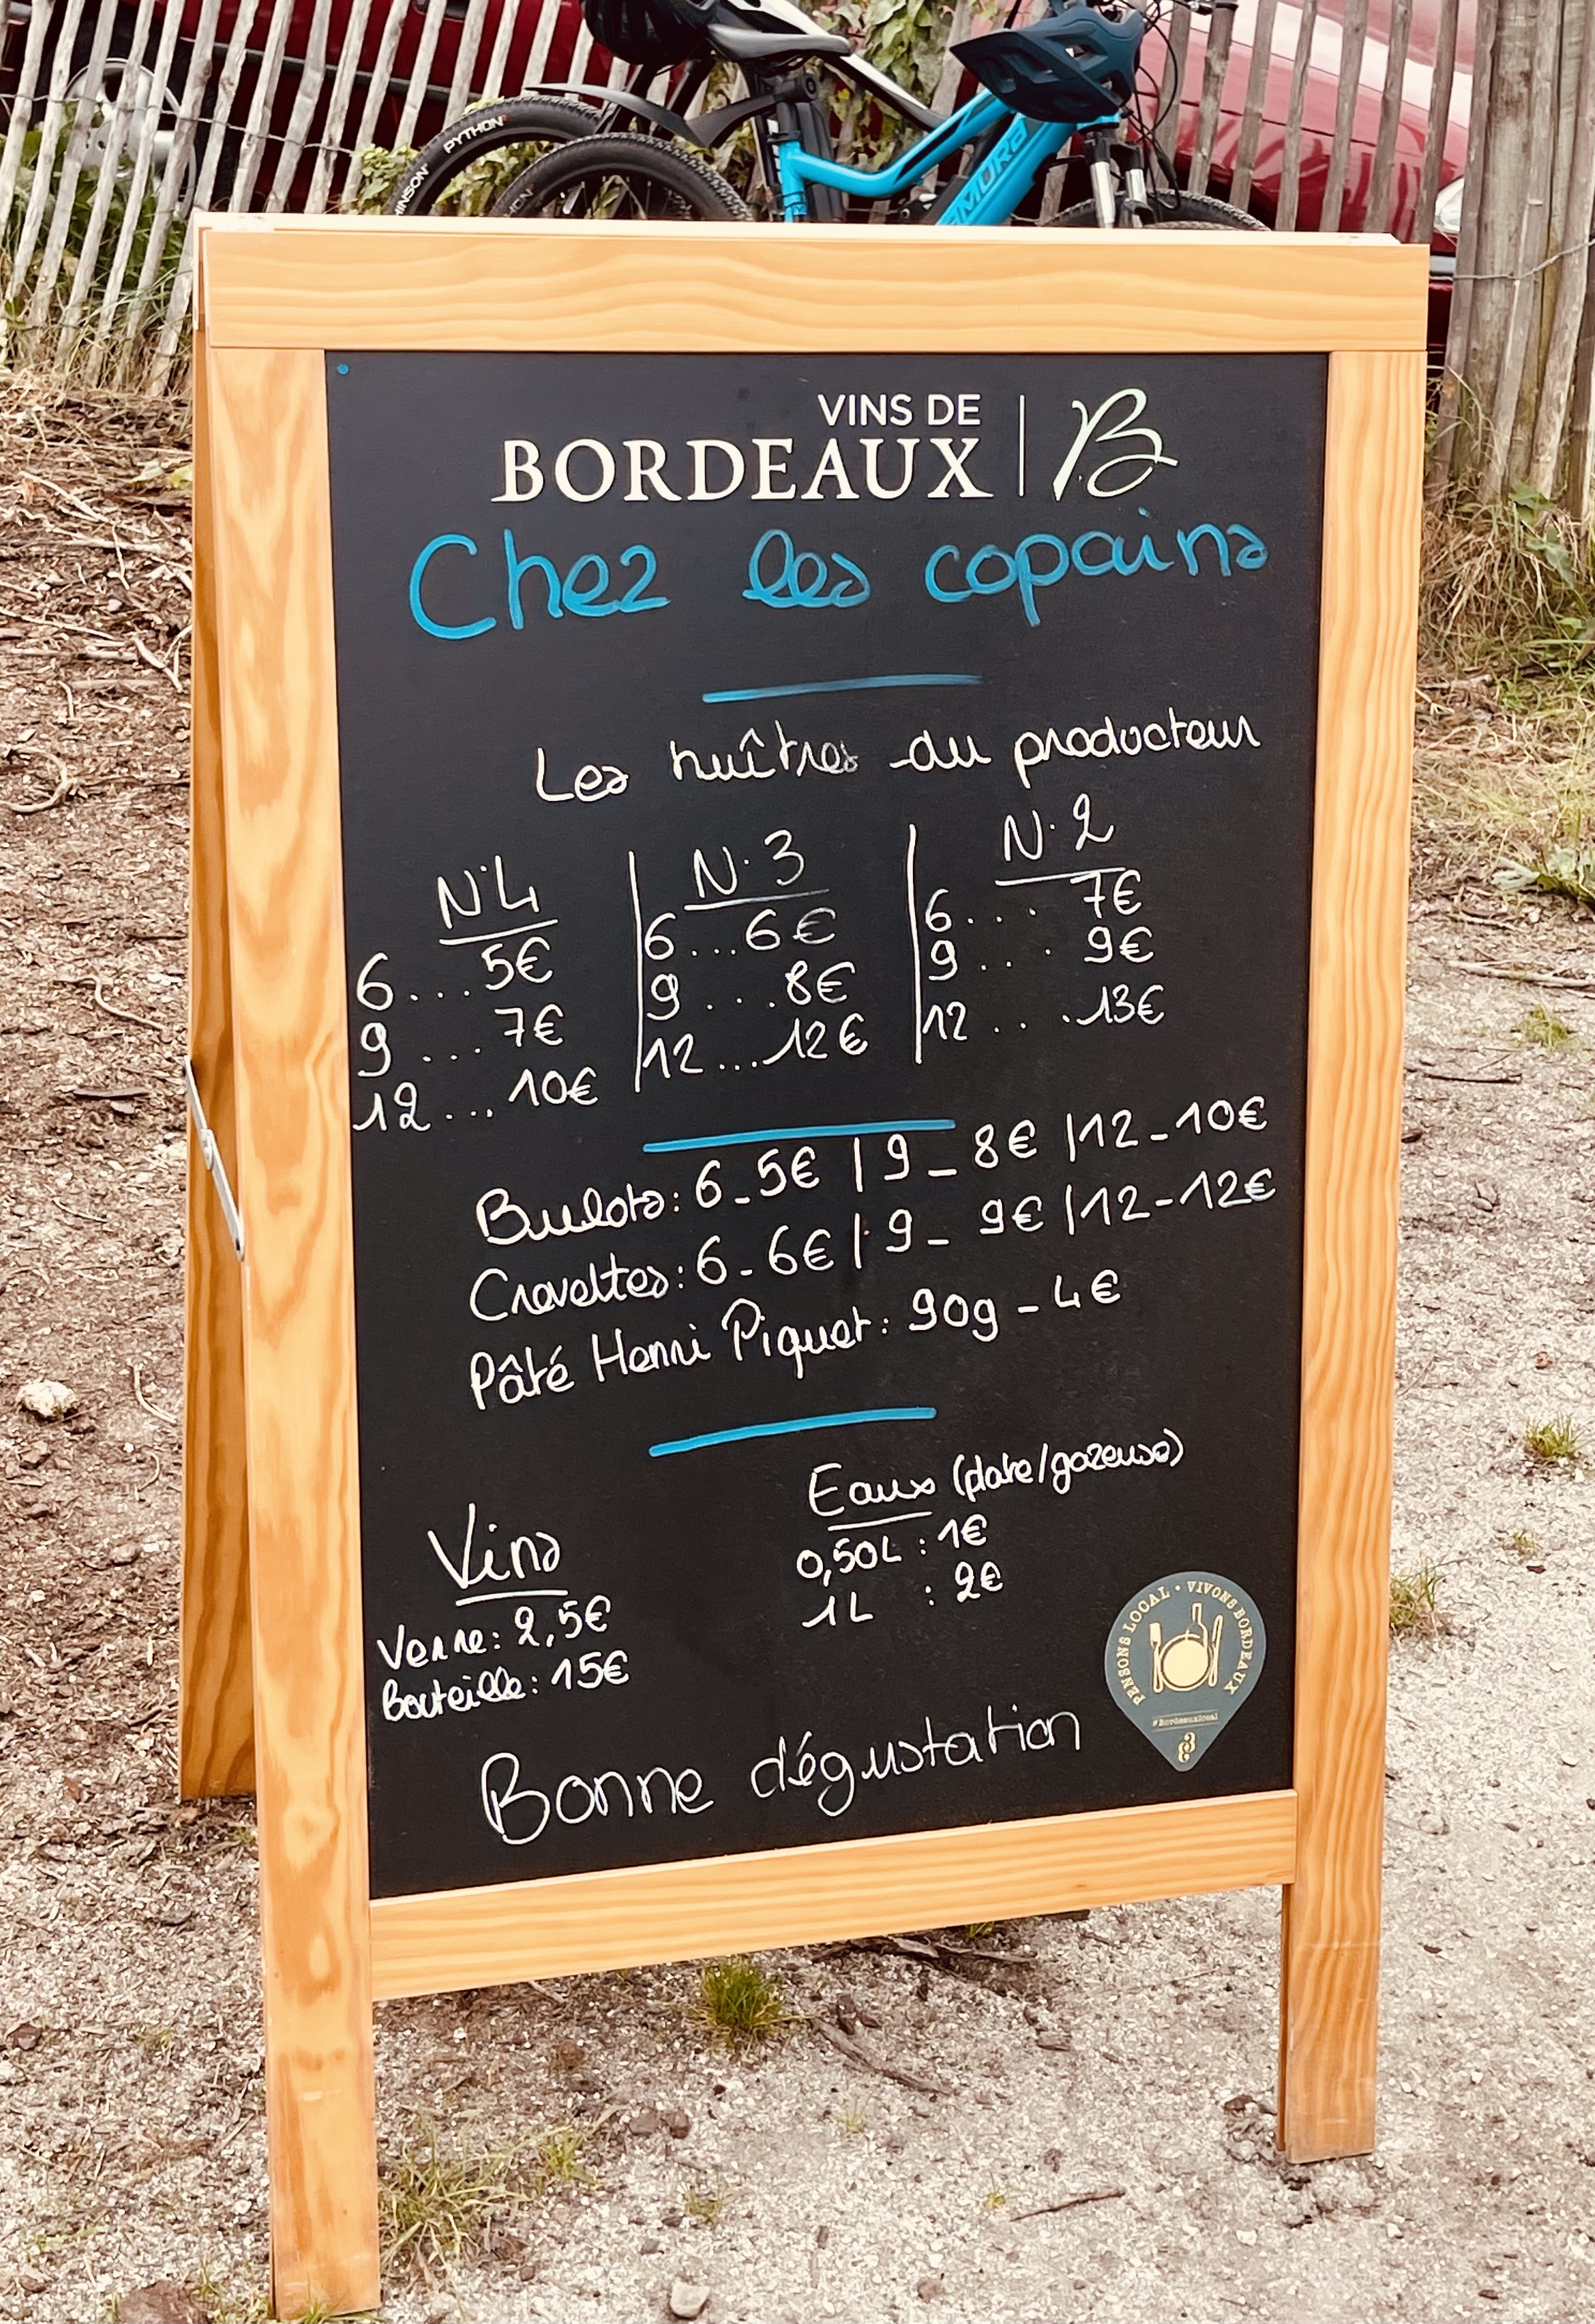 PYTHON
AMURA
VINS DE
BORDEAUX | B
Chez les copains
Les huîtres du producteur
N°4
6...5€
9....7€
12...10€
N°3
6...6€
9....8€
12...12€
N°2
6....7€
9....9€
12....13€
Bulots: 6_5€ | 9_8€ | 12_10€
Crevettes: 6_6€ | 9_9€ | 12-12€
Pâté Henri Piquet: 90g - 4€
Vins
Verre: 2,5€
Bouteille: 15€
Eaux (plate/gazeuse)
0,50L : 1€
1L : 2€
PENSONS LOCAL • VIVONS BORDEAUX
#Bordeauxlocal
Bonne dégustation